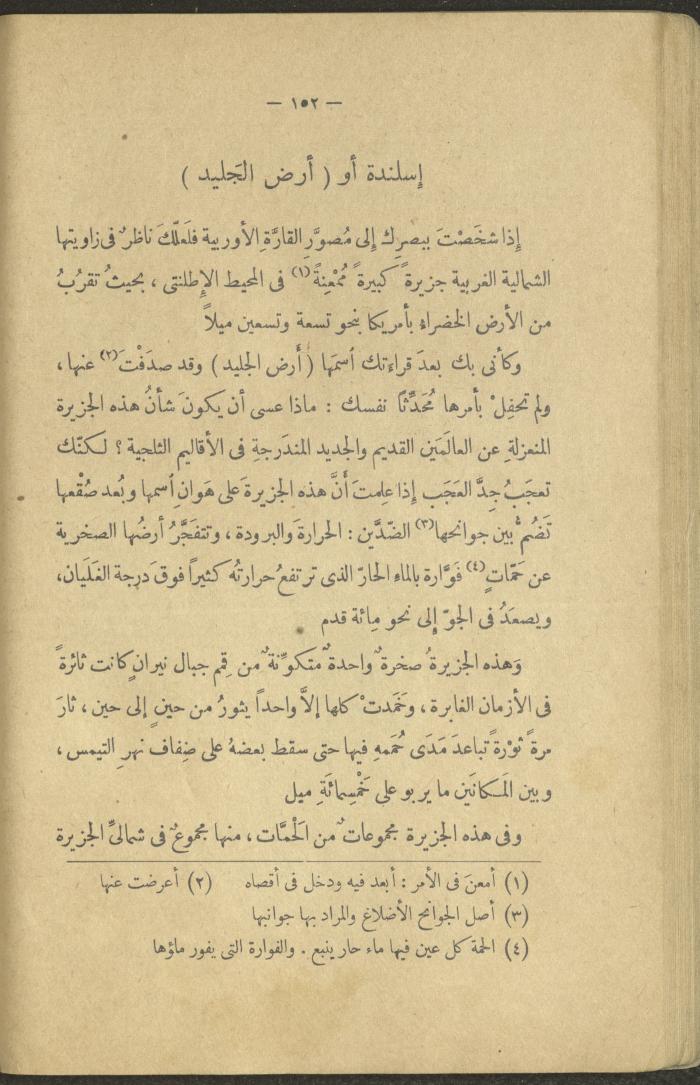 — ١٥٢ —
إسلندة أو ( أرض الجَليد )
إِذا شخَصْتَ ببصرِك إِلى مُصوَّرِ القارَّةِ الأوربية فلَعلّكَ ناظرٌ فى زاويتها
الشمالية الغربية جزيرةً كبيرةً مُمْعِنةً (١) فى المحيط الإِطلنتى ، بحيثُ تقرُبُ
من الأرض الخضراءِ بأمريكا بنحو تسعة وتسعين ميلاً
وكأنى بك بعدَ قراءتك ٱسمَها ( أَرض الجليد ) وقد صدَفْتَ (٢) عنها ،
ولم تحفِلْ بأمرها مُحَدِّثًا نفسك : ماذا عسى أن يكونَ شأنُ هذه الجزيرة
المنعزلةِ عن العالَمَين القديم والجديد المندَرجةِ فى الأقاليم الثلجية ؟ لكنّك
تعجَبُ جِدَّ العَجَب إِذا علِمتَ أَنَّ هذه الجزيرةَ على هَوانِ ٱسمها وبُعد صُقْعها
تَضُمُّ بين جوانحها (٣) الضّدَّين : الحرارةَ والبرودة ، وتتفَجَّرُ أرضُها الصخرية
عن حَمّاتٍ (٤) فَوَّارة بالماءِ الحارّ الذى ترتفعُ حرارتُه كثيراً فوقَ درجة الغَلَيان،
ويصعَدُ فى الجوّ إِلى نحو مِائة قدم
وَهذه الجزيرةُ صخرةٌ واحدةٌ متكوِّنةٌ من قِمم جبال نيرانٍ كانت ثائرةً
فى الأزمان الغابرة ، وخَمَدتْ كلها إلاَّ واحداً يثورُ من حينٍ إلى حين ، ثارَ
مرةً ثوْرةً تباعدَ مَدَى حُمَمهِ فيها حتى سقط بعضهُ على ضِفاف نهرِ التيمس ،
وبين المَكانَين ما يربو على خَمْسِمائَةِ ميل
وفى هذه الجزيرة مجموعاتٌ من الحَمَّات ، منها مجموعٌ فى شمالىِّ الجزيرة
(١) أمعنَ فى الأمر : أبعد فيه ودخل فى أقصاه (٢) أعرضت عنها
(٣) أصل الجوانح الأضلاع والمراد بها جوانبها
(٤) الحمة كل عين فيها ماء حار ينبع . والفوارة التى يفور ماؤها